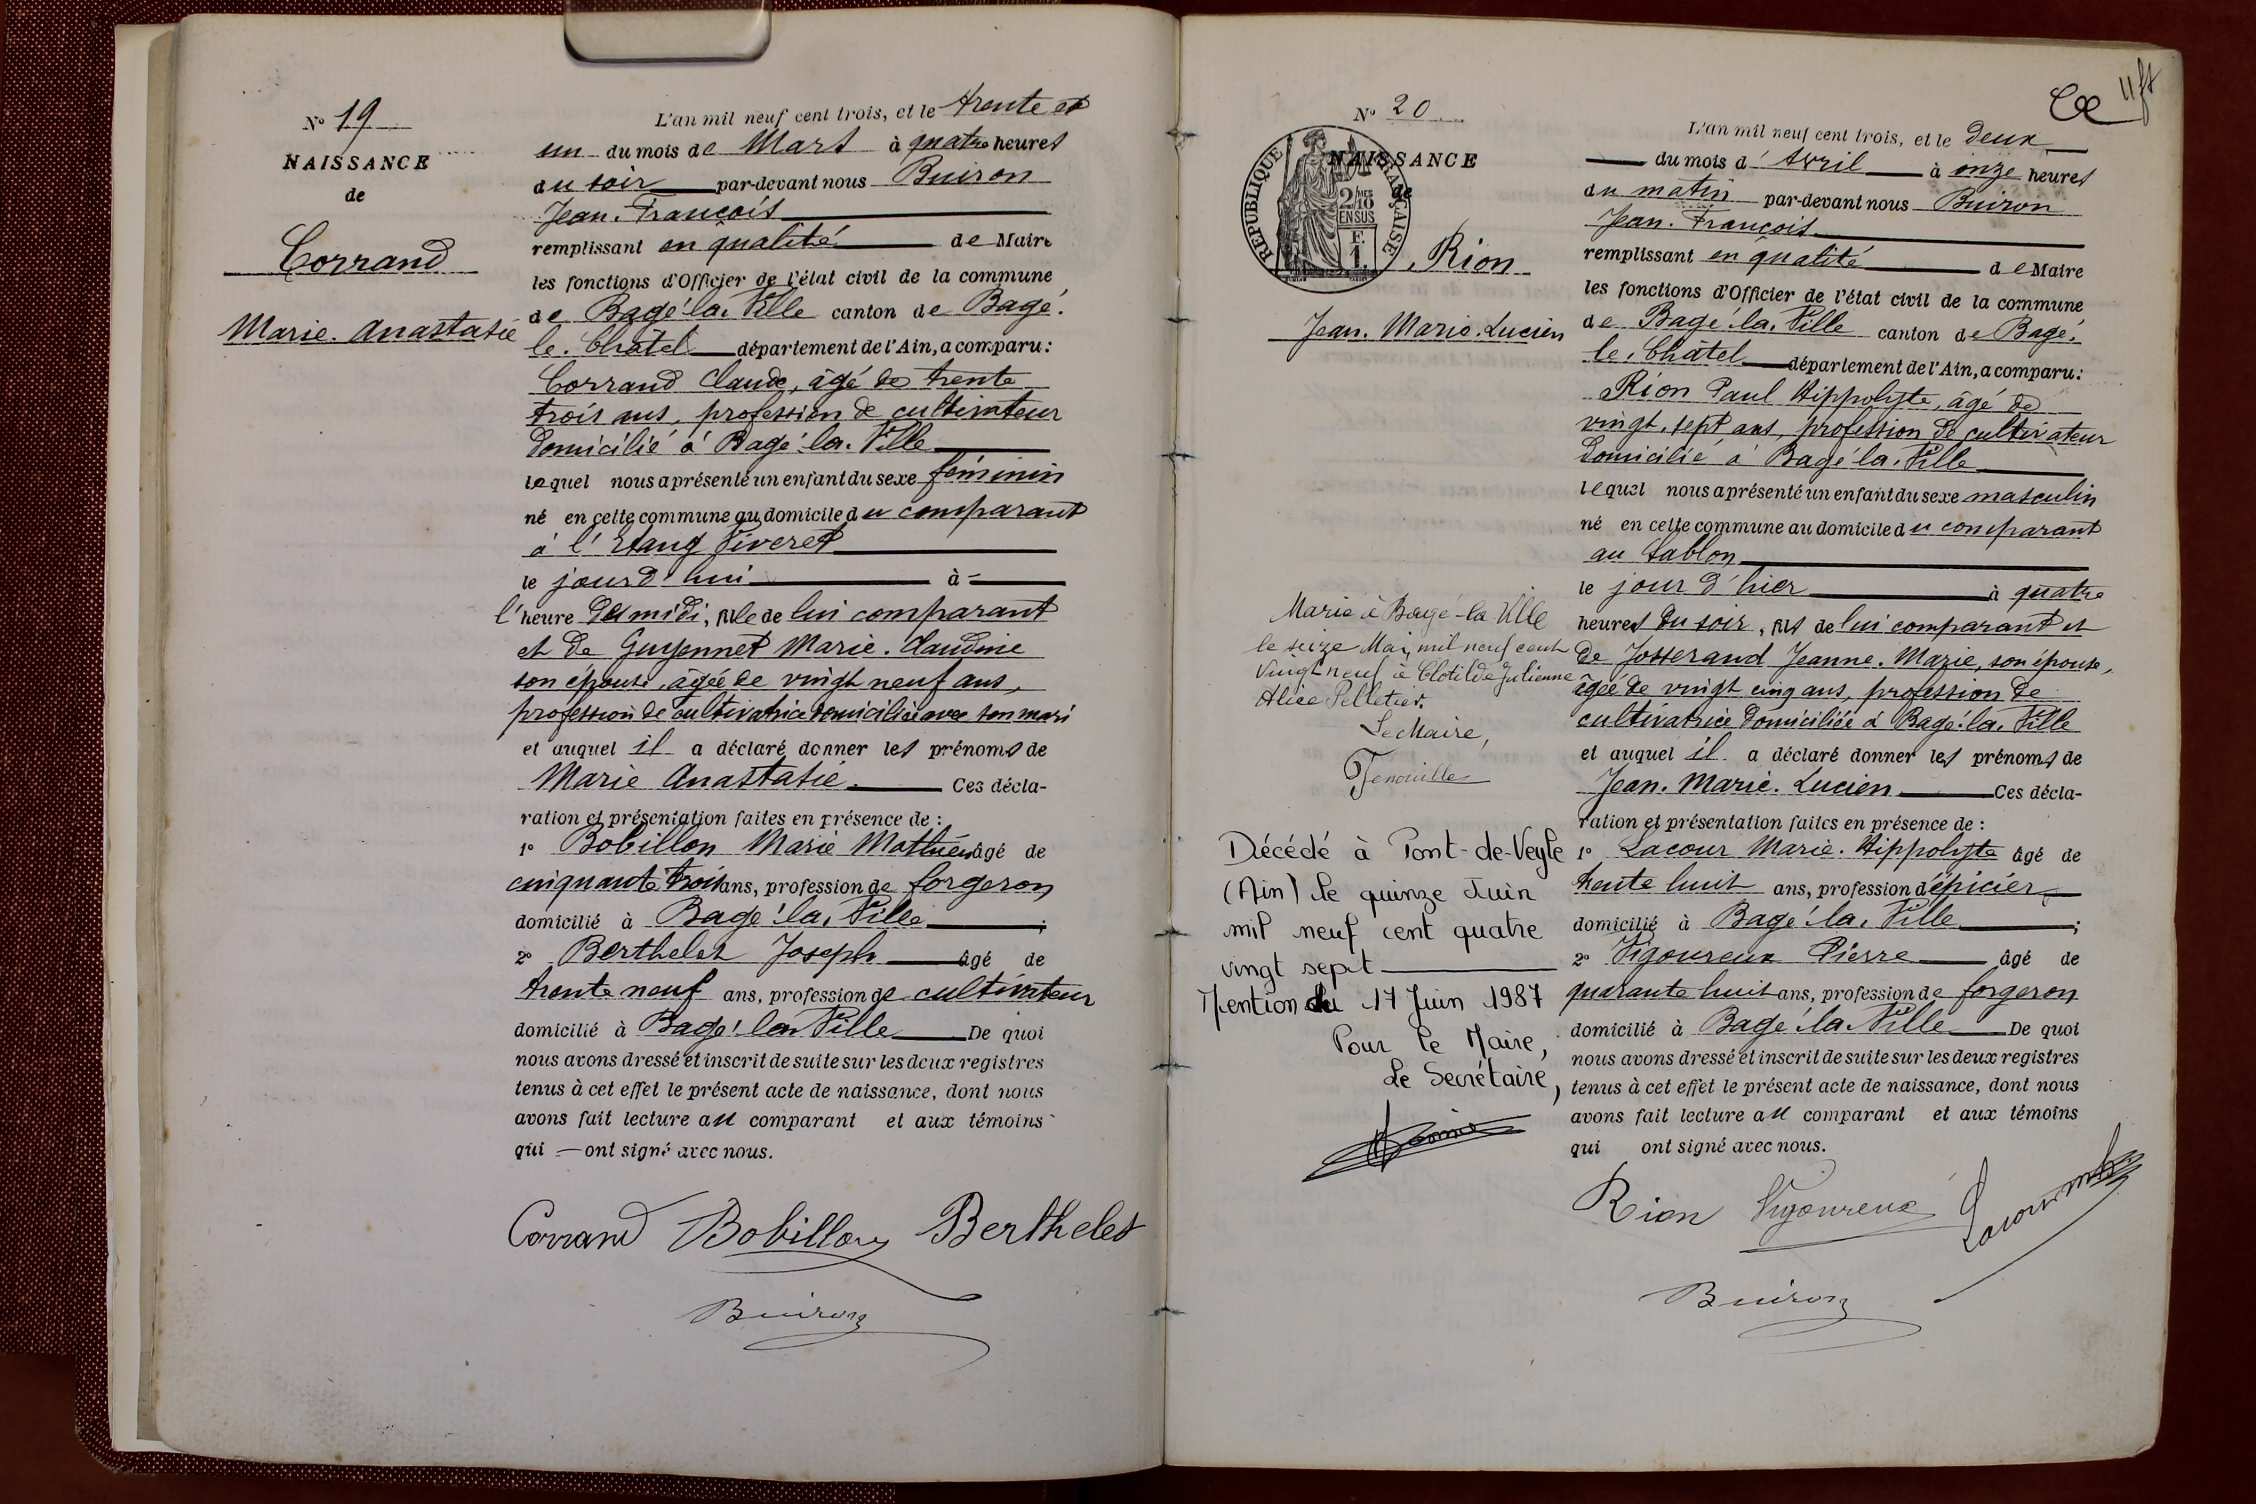 Nº 19
NAISSANCE
de
Corrand
Marie. Anastasie
L'an mil neuf cent trois, et le trente et
un du mois de Mars à quatre heures
du soir par-devant nous Buiron
Jean. François
remplissant en qualité de Maire
les fonctions d'Officier de l'état civil de la commune
de Bagé-la-Ville canton de Bagé-
le-Châtel département de l'Ain, a comparu:
Corrand Claude, âgé de trente
trois ans, profession de cultivateur
domicilié à Bagé-la-Ville
lequel nous a présenté un enfant du sexe féminin
né en cette commune au domicile du comparant
à l'Etang Viveret
le jourd'hui à -
l'heure de midi, fille de lui comparant
et de Guyennet Marie. Claudine
son épouse, âgée de vingt neuf ans,
profession de cultivatrice domiciliée avec son mari
et auquel il a déclaré donner les prénoms de
Marie Anastasie Ces décla-
ration et présentation faites en présence de :
1º Bobillon Marie Mathieu âgé de
cinquante trois ans, profession de forgeron
domicilié à Bagé-la-Ville ;
2º Berthelet Joseph âgé de
trente neuf ans, profession de cultivateur
domicilié à Bagé-la-Ville De quoi
nous avons dressé et inscrit de suite sur les deux registres
tenus à cet effet le présent acte de naissance, dont nous
avons fait lecture au comparant et aux témoins
qui — ont signé avec nous.
Corrand Bobillon Berthelet
Buiron
11 ft
Nº 20
NAISSANCE
de
REPUBLIQUE FRANÇAISE
2/10 MES
EN SUS
F.
1.
Rion
Jean. Marie. Lucien
L'an mil neuf cent trois, et le deux
du mois d'Avril à onze heures
du matin par-devant nous Buiron
Jean. François
remplissant en qualité de Maire
les fonctions d'Officier de l'état civil de la commune
de Bagé-la-Ville canton de Bagé-
le-Châtel département de l'Ain, a comparu:
Rion Paul Hippolyte, âgé de
vingt-sept ans, profession de cultivateur
domicilié à Bagé-la-Ville
lequel nous a présenté un enfant du sexe masculin
né en cette commune au domicile du comparant
au Sablon
le jour d'hier à quatre
heures du soir, fils de lui comparant et
de Josserand Jeanne. Marie, son épouse,
âgée de vingt cinq ans, profession de
cultivatrice domiciliée à Bagé-la-Ville
et auquel il a déclaré donner les prénoms de
Jean. Marie. Lucien Ces décla-
ration et présentation faites en présence de :
1º Lacour Marie. Hippolyte âgé de
trente huit ans, profession d'épicier
domicilié à Bagé-la-Ville ;
2º Vigoureux Pierre âgé de
quarante huit ans, profession de forgeron
domicilié à Bagé-la-Ville De quoi
nous avons dressé et inscrit de suite sur les deux registres
tenus à cet effet le présent acte de naissance, dont nous
avons fait lecture au comparant et aux témoins
qui ont signé avec nous.
Rion Vigoureux Lacour
Buiron
Marié à Bagé-la-Ville
le seize Mai mil neuf cent
vingt neuf à Clotilde Julienne
Alice Pelletier.
Le Maire,
Décédé à Pont-de-Veyle
(Ain) le quinze Juin
mil neuf cent quatre
vingt sept
Mention du 17 Juin 1987
Pour le Maire,
Le Secrétaire,